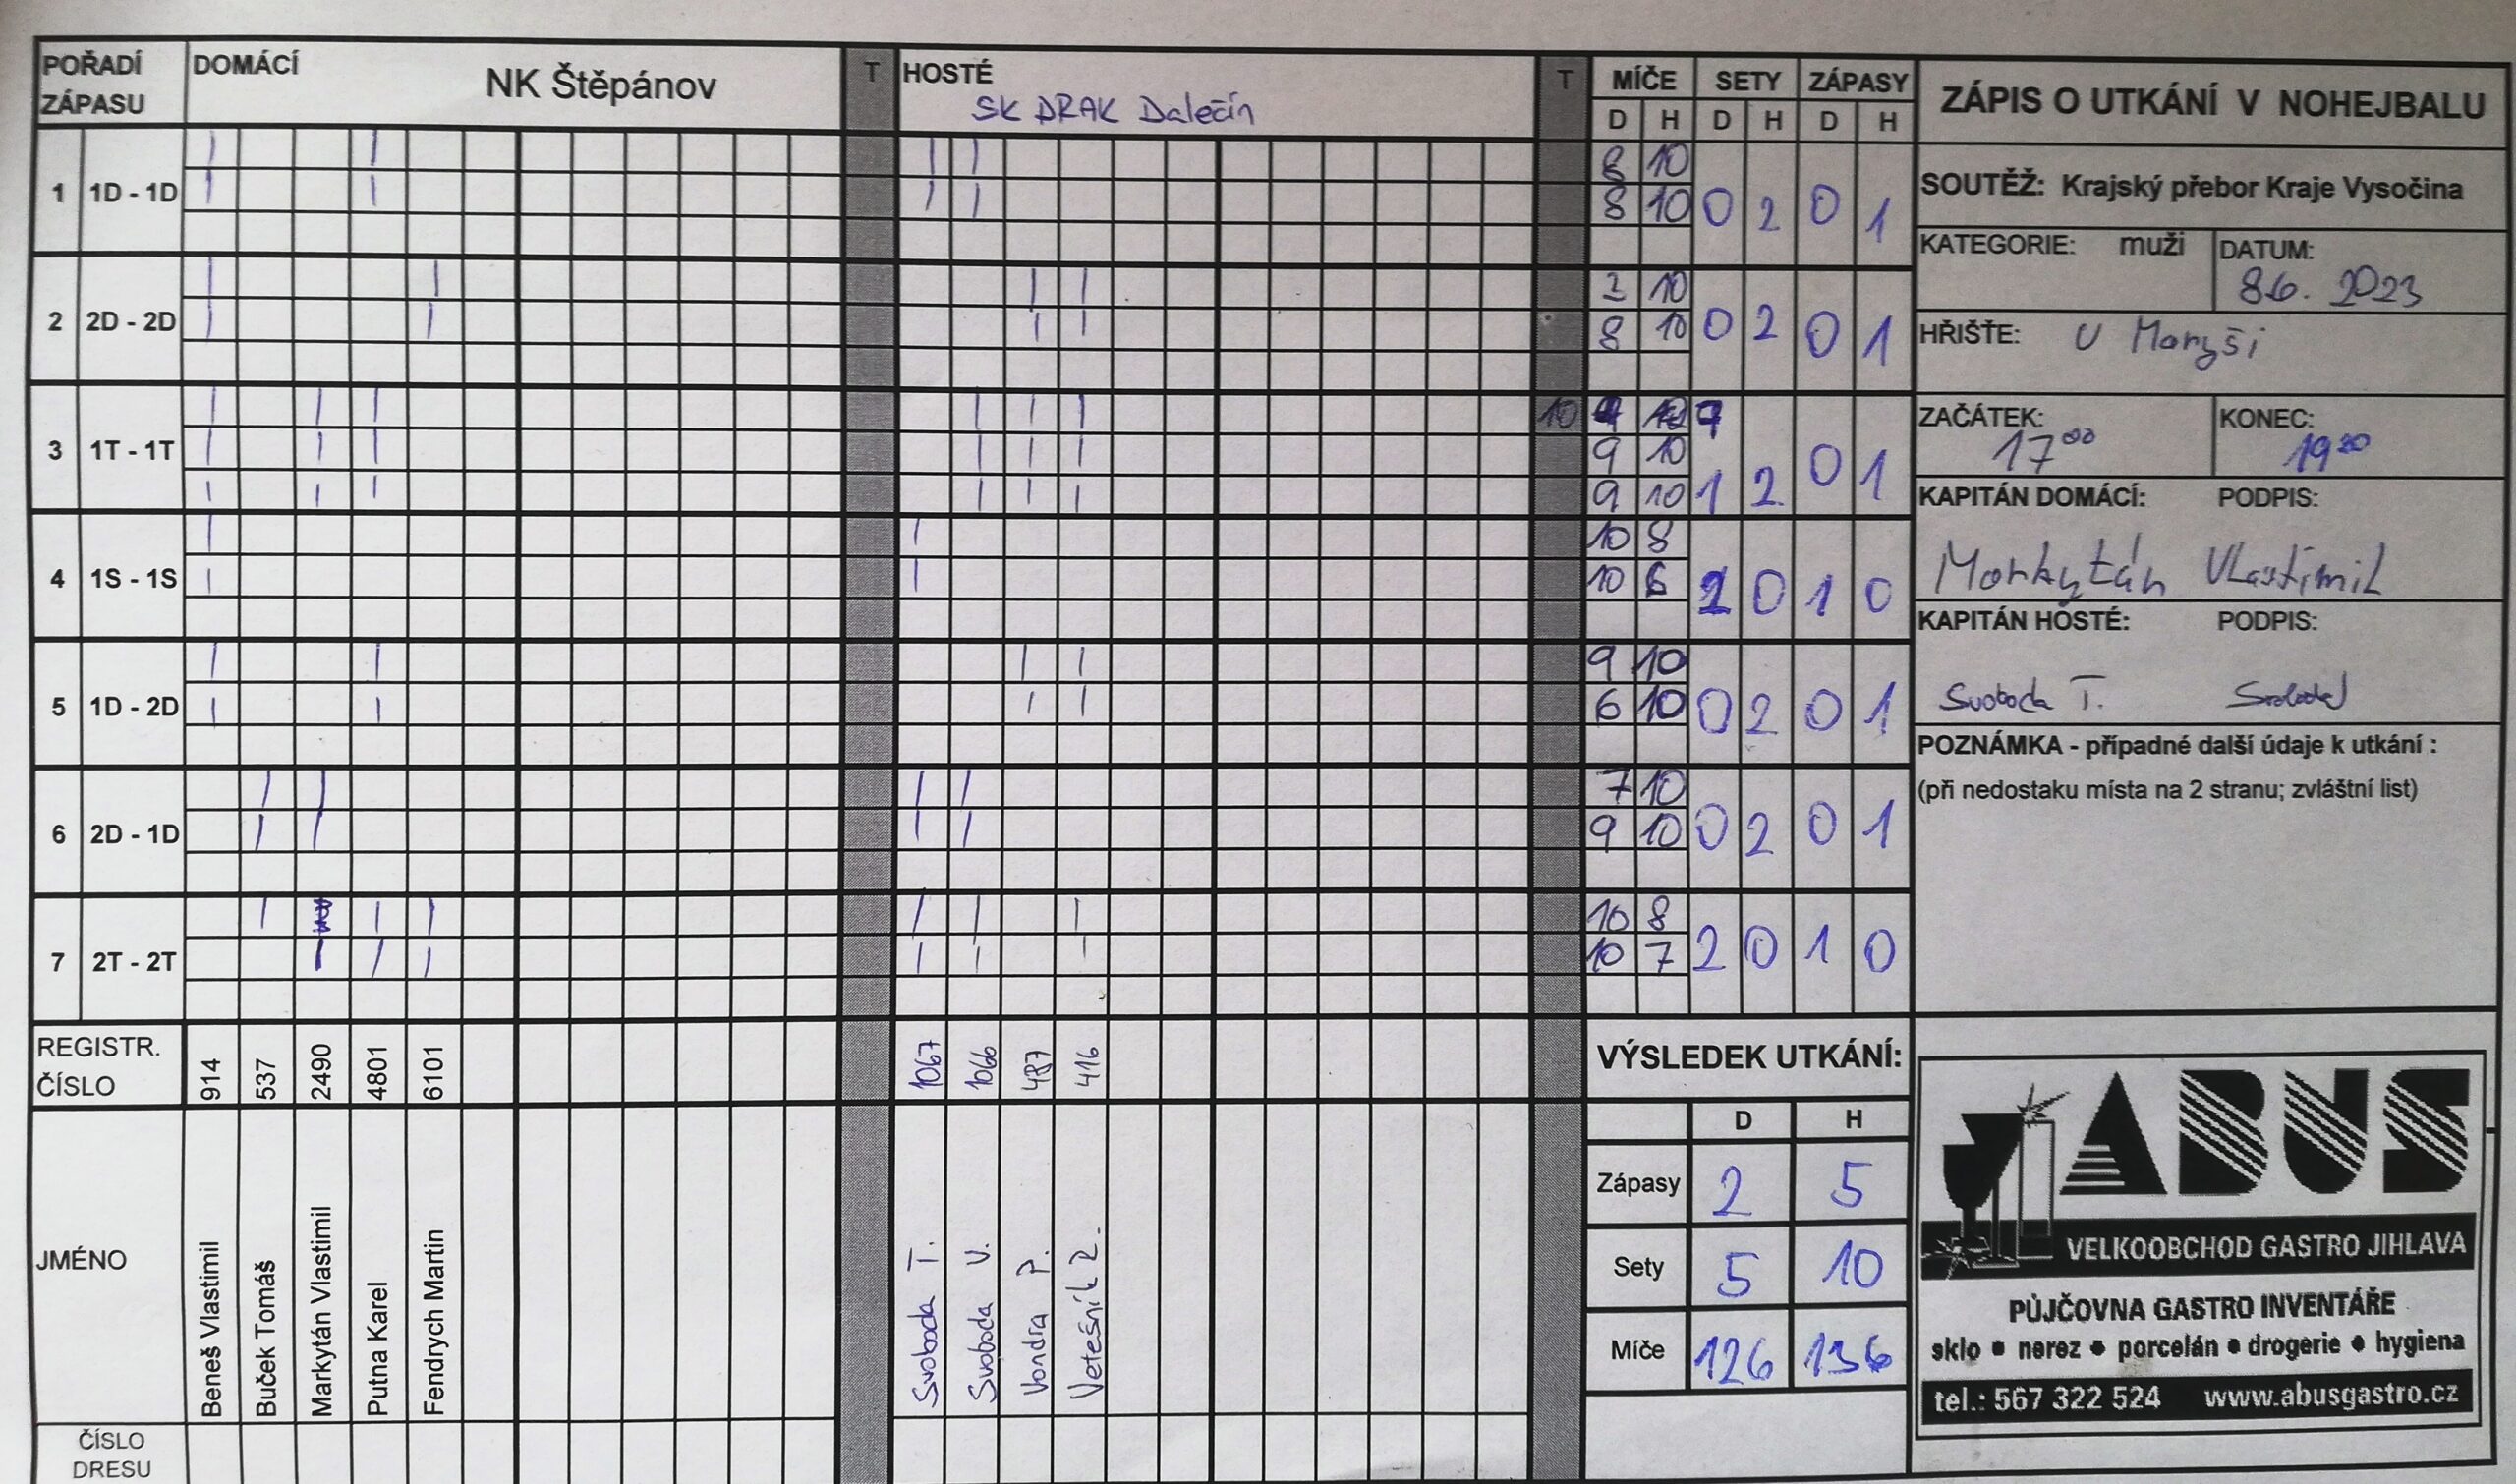 POŘADÍ ZÁPASU DOMÁCÍ NK Štěpánov T HOSTÉ SK DRAK Dalečín T MÍČE SETY ZÁPASY
D H D H D H
1 1D - 1D 8 10 0 2 0 1
8 10
2 2D - 2D 10 0 2 0 1
8 10
3 1T - 1T 10
9 10 1 2 0 1
9 10
4 1S - 1S 10 8 2 0 1 0
10 6
5 1D - 2D 9 10 0 2 0 1
6 10
6 2D - 1D 7 10 0 2 0 1
9 10
7 2T - 2T 10 8 2 0 1 0
10 7
REGISTR. ČÍSLO 914 537 2490 4801 6101 1067 1066 487 416
JMÉNO
Beneš Vlastimil
Buček Tomáš
Markytán Vlastimil
Putna Karel
Fendrych Martin
Svoboda T.
Svoboda V.
Vondra P.
Vetešník R.
ČÍSLO DRESU
VÝSLEDEK UTKÁNÍ:
D H
Zápasy 2 5
Sety 5 10
Míče 126 136
ZÁPIS O UTKÁNÍ V NOHEJBALU
SOUTĚŽ: Krajský přebor Kraje Vysočina
KATEGORIE: muži DATUM: 8.6. 2023
HŘIŠTE: U Maryši
ZAČÁTEK: 17⁰⁰ KONEC: 19³⁰
KAPITÁN DOMÁCÍ: PODPIS:
Markytán Vlastimil
KAPITÁN HOSTÉ: PODPIS:
Svoboda T. Svoboda
POZNÁMKA - případné další údaje k utkání :
(při nedostaku místa na 2 stranu; zvláštní list)
ABUS
VELKOOBCHOD GASTRO JIHLAVA
PŮJČOVNA GASTRO INVENTÁŘE
sklo • nerez • porcelán • drogerie • hygiena
tel.: 567 322 524 www.abusgastro.cz